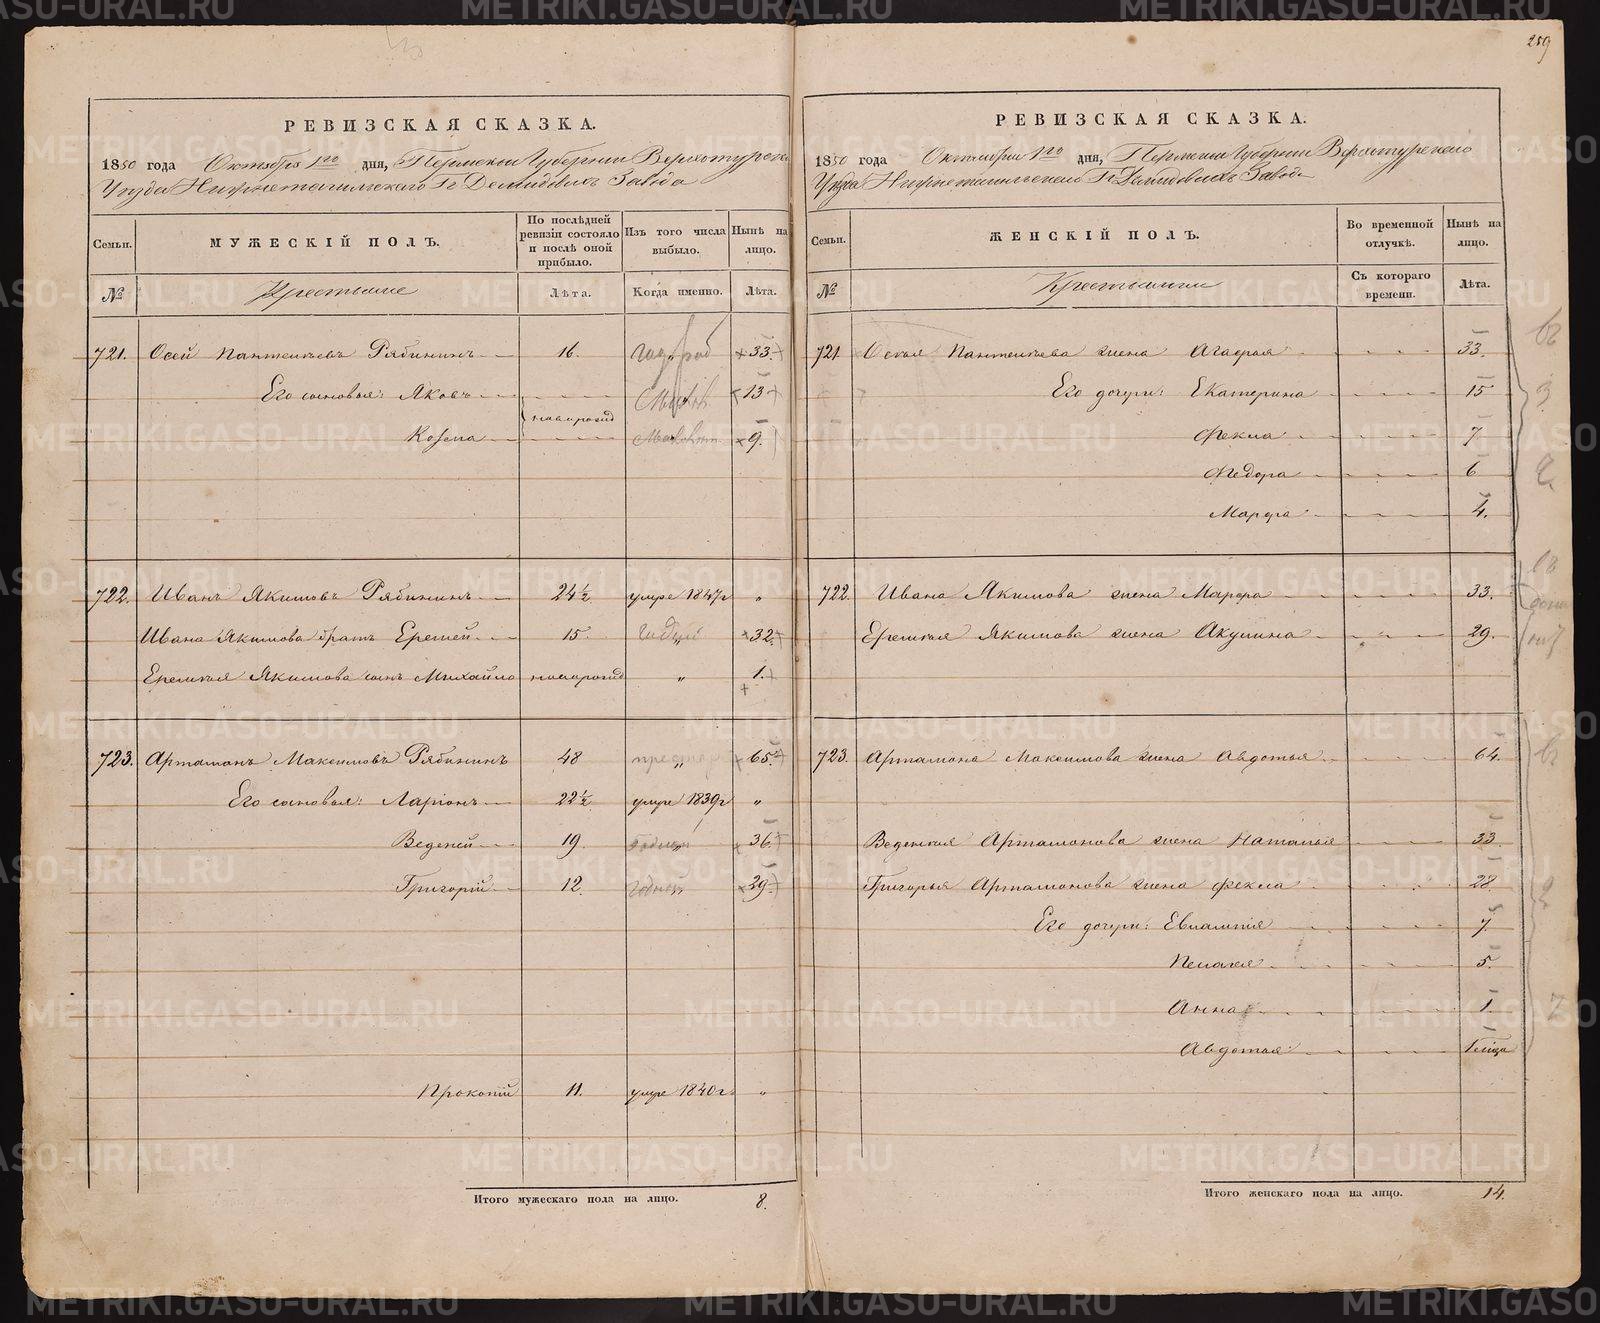 259
РЕВИЗСКАЯ СКАЗКА.
1850 года Октября 1го дня, Пермской Губернии Верхотурскаго
Уезда Нижнетагильскаго Гг Демидовыхъ Завода
Семьи.
МУЖЕСКІЙ ПОЛЪ.
По послѣдней ревизіи состояло и послѣ оной прибыло.
Изъ того числа выбыло.
Нынѣ на лицо.
№
Крестьяне
Лѣта.
Когда именно.
Лѣта.
721. Осей Пантелѣевъ Рябининъ 16. 33.
Его сыновья: Яковъ 13
новорожд
Козма 9.
722. Иванъ Якимовъ Рябининъ 24½ умре 1847г "
Ивана Якимова братъ Еремей 15 " 32.
Еремѣя Якимова сынъ Михайло новорожд " 1.
723. Артамонъ Максимовъ Рябининъ 48 " 65.
Его сыновья: Ларіонъ 22½ умре 1839г "
Веденей 19 годней 36.
Григорій 12. годней 29.
Прокопій 11. умре 1840г "
Итого мужескаго пола на лицо. 8.
РЕВИЗСКАЯ СКАЗКА.
1850 года Октября 1го дня, Пермской Губерніи Верхотурскаго
Уезда Нижнетагильскаго Гг Демидовыхъ Завода
Семьи.
ЖЕНСКІЙ ПОЛЪ.
Во временной отлучкѣ.
Нынѣ на лицо.
№
Крестьянки
Съ котораго времени.
Лѣта.
721 Осѣя Пантелѣева жена Агафья 33.
Его дочери: Екатерина 15
Фекла 7
Федора 6
Марфа 4.
722. Ивана Якимова жена Марфа 33.
Еремѣя Якимова жена Акулина " 29.
723. Артамона Максимова жена Авдотья 64.
Веденѣя Артамонова жена Наталья 33
Григорья Артамонова жена Фекла 28
Его дочери: Евлампія 7.
Пелагея 5.
Анна 1.
Авдотья 1 міца
Итого женскаго пола на лицо. 14.
METRIKI.GASO-URAL.RU